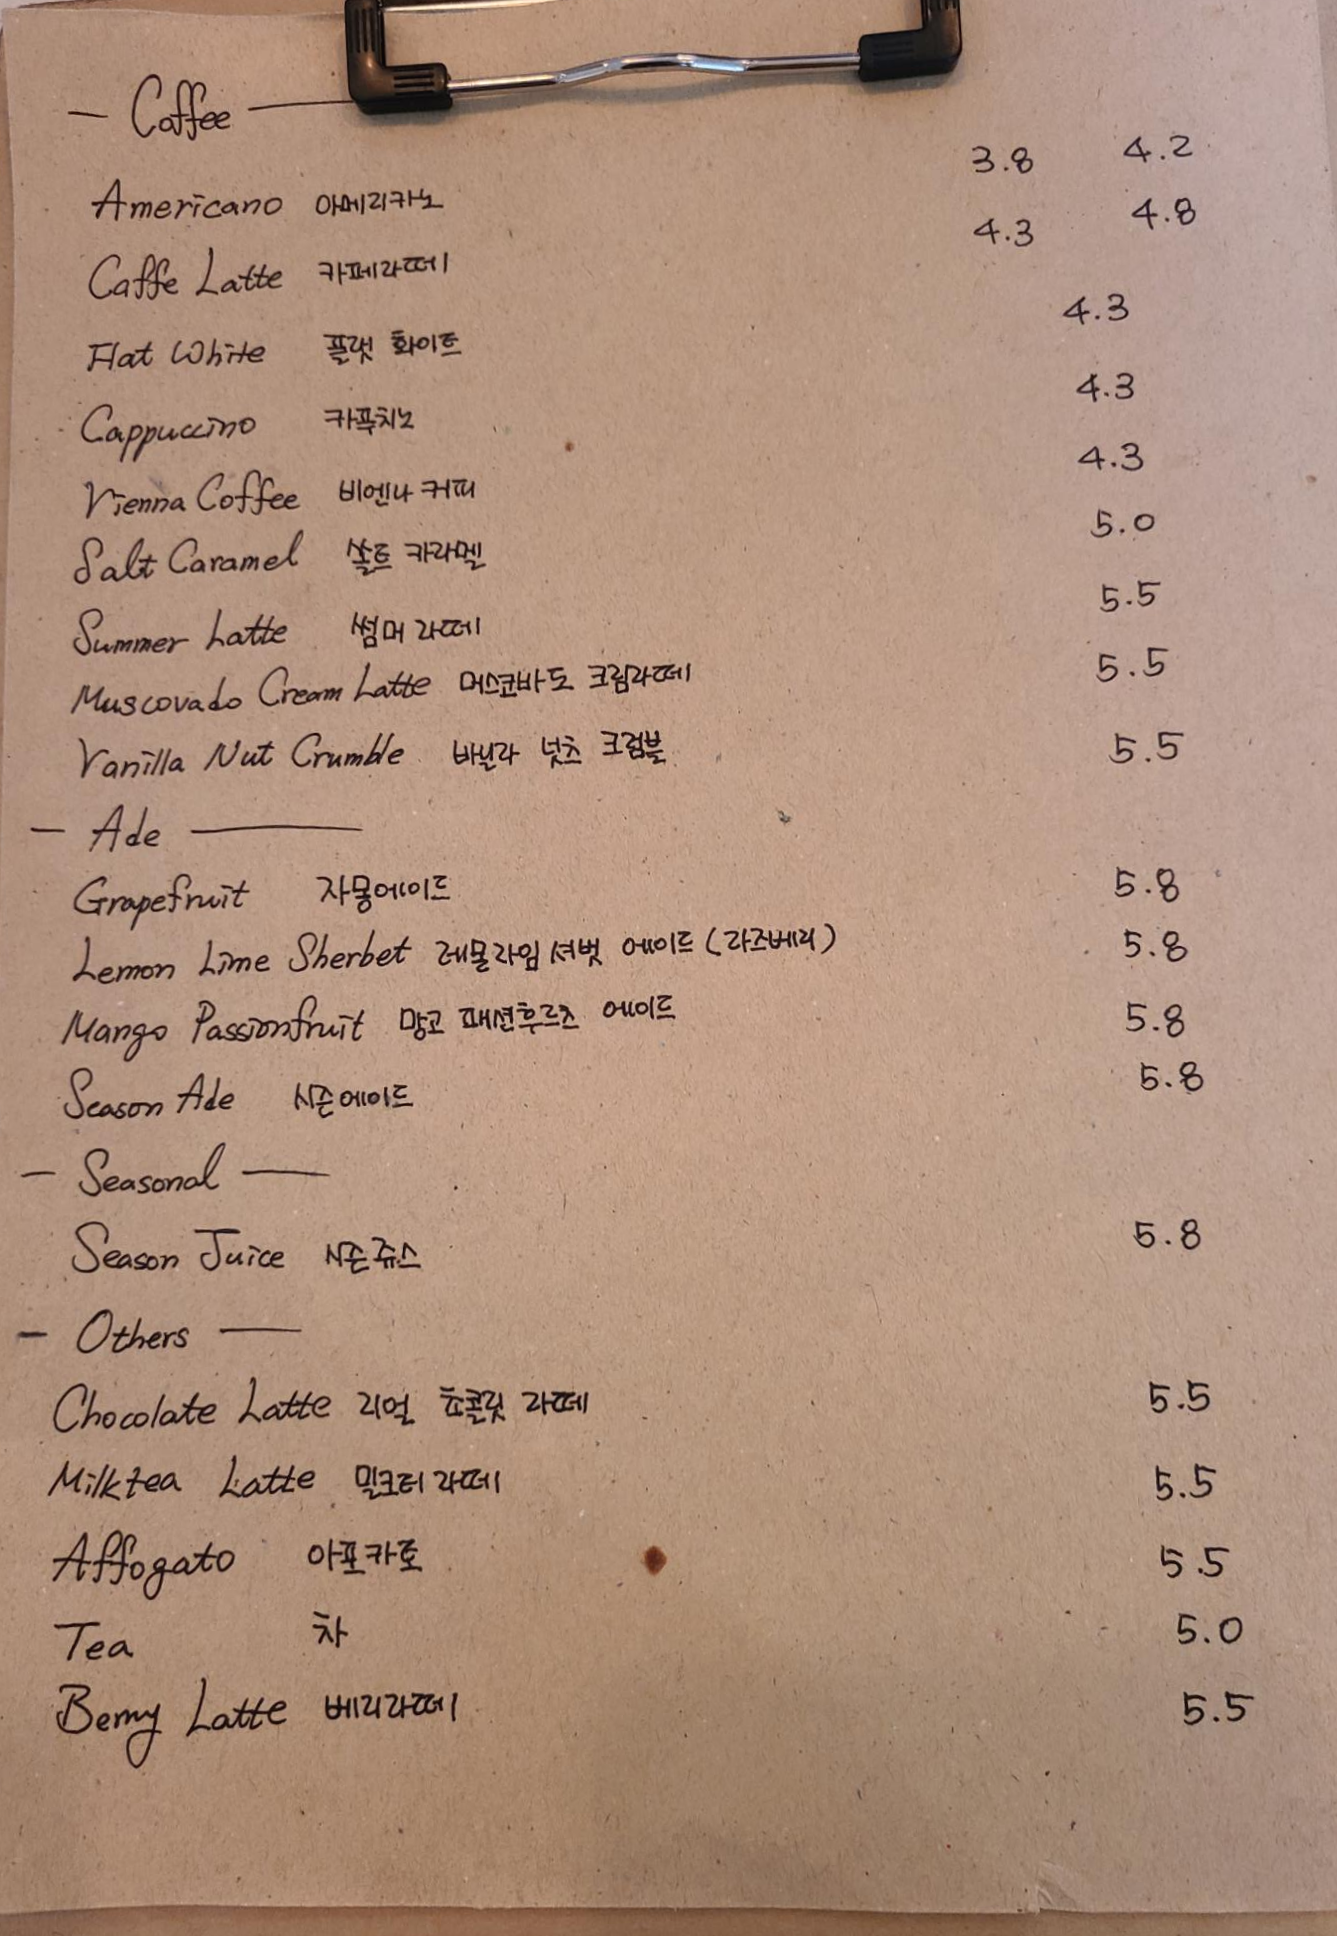 - Coffee -
Americano 아메리카노 3.8 4.2
Caffe Latte 카페라떼 4.3 4.8
Flat White 플랫 화이트 4.3
Cappuccino 카푸치노 4.3
Vienna Coffee 비엔나 커피 4.3
Salt Caramel 쏠트 카라멜 5.0
Summer Latte 썸머 라떼 5.5
Muscovado Cream Latte 머스코바도 크림라떼 5.5
Vanilla Nut Crumble 바닐라 넛츠 크럼블 5.5
- Ade -
Grapefruit 자몽에이드 5.8
Lemon Lime Sherbet 레몬라임 셔벗 에이드 (라즈베리) 5.8
Mango Passionfruit 망고 패션후르츠 에이드 5.8
Season Ade 시즌에이드 5.8
- Seasonal -
Season Juice 시즌쥬스 5.8
- Others -
Chocolate Latte 리얼 쵸콜릿 라떼 5.5
Milktea Latte 밀크티 라떼 5.5
Affogato 아포카토 5.5
Tea 차 5.0
Berry Latte 베리라떼 5.5